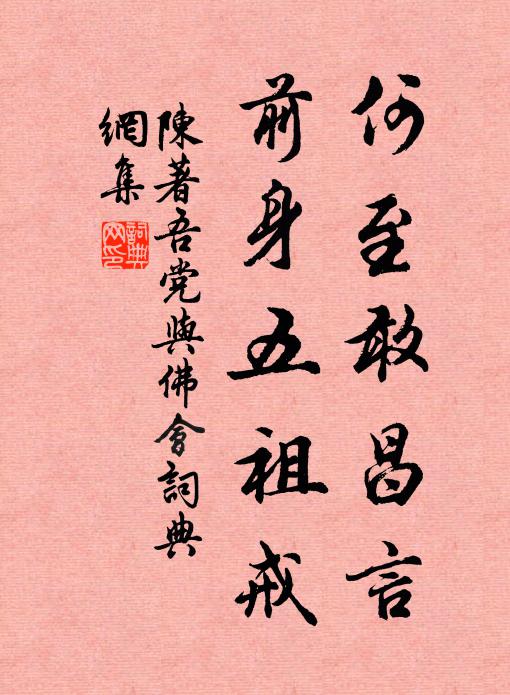 何至敢昌言
前身五祖戒
陳著吾党與佛會詞典
網集
詞典
网印